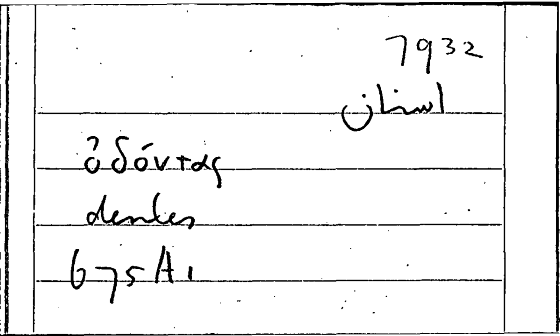 7932
اسنان
ὀδόντας
dentes
675A1